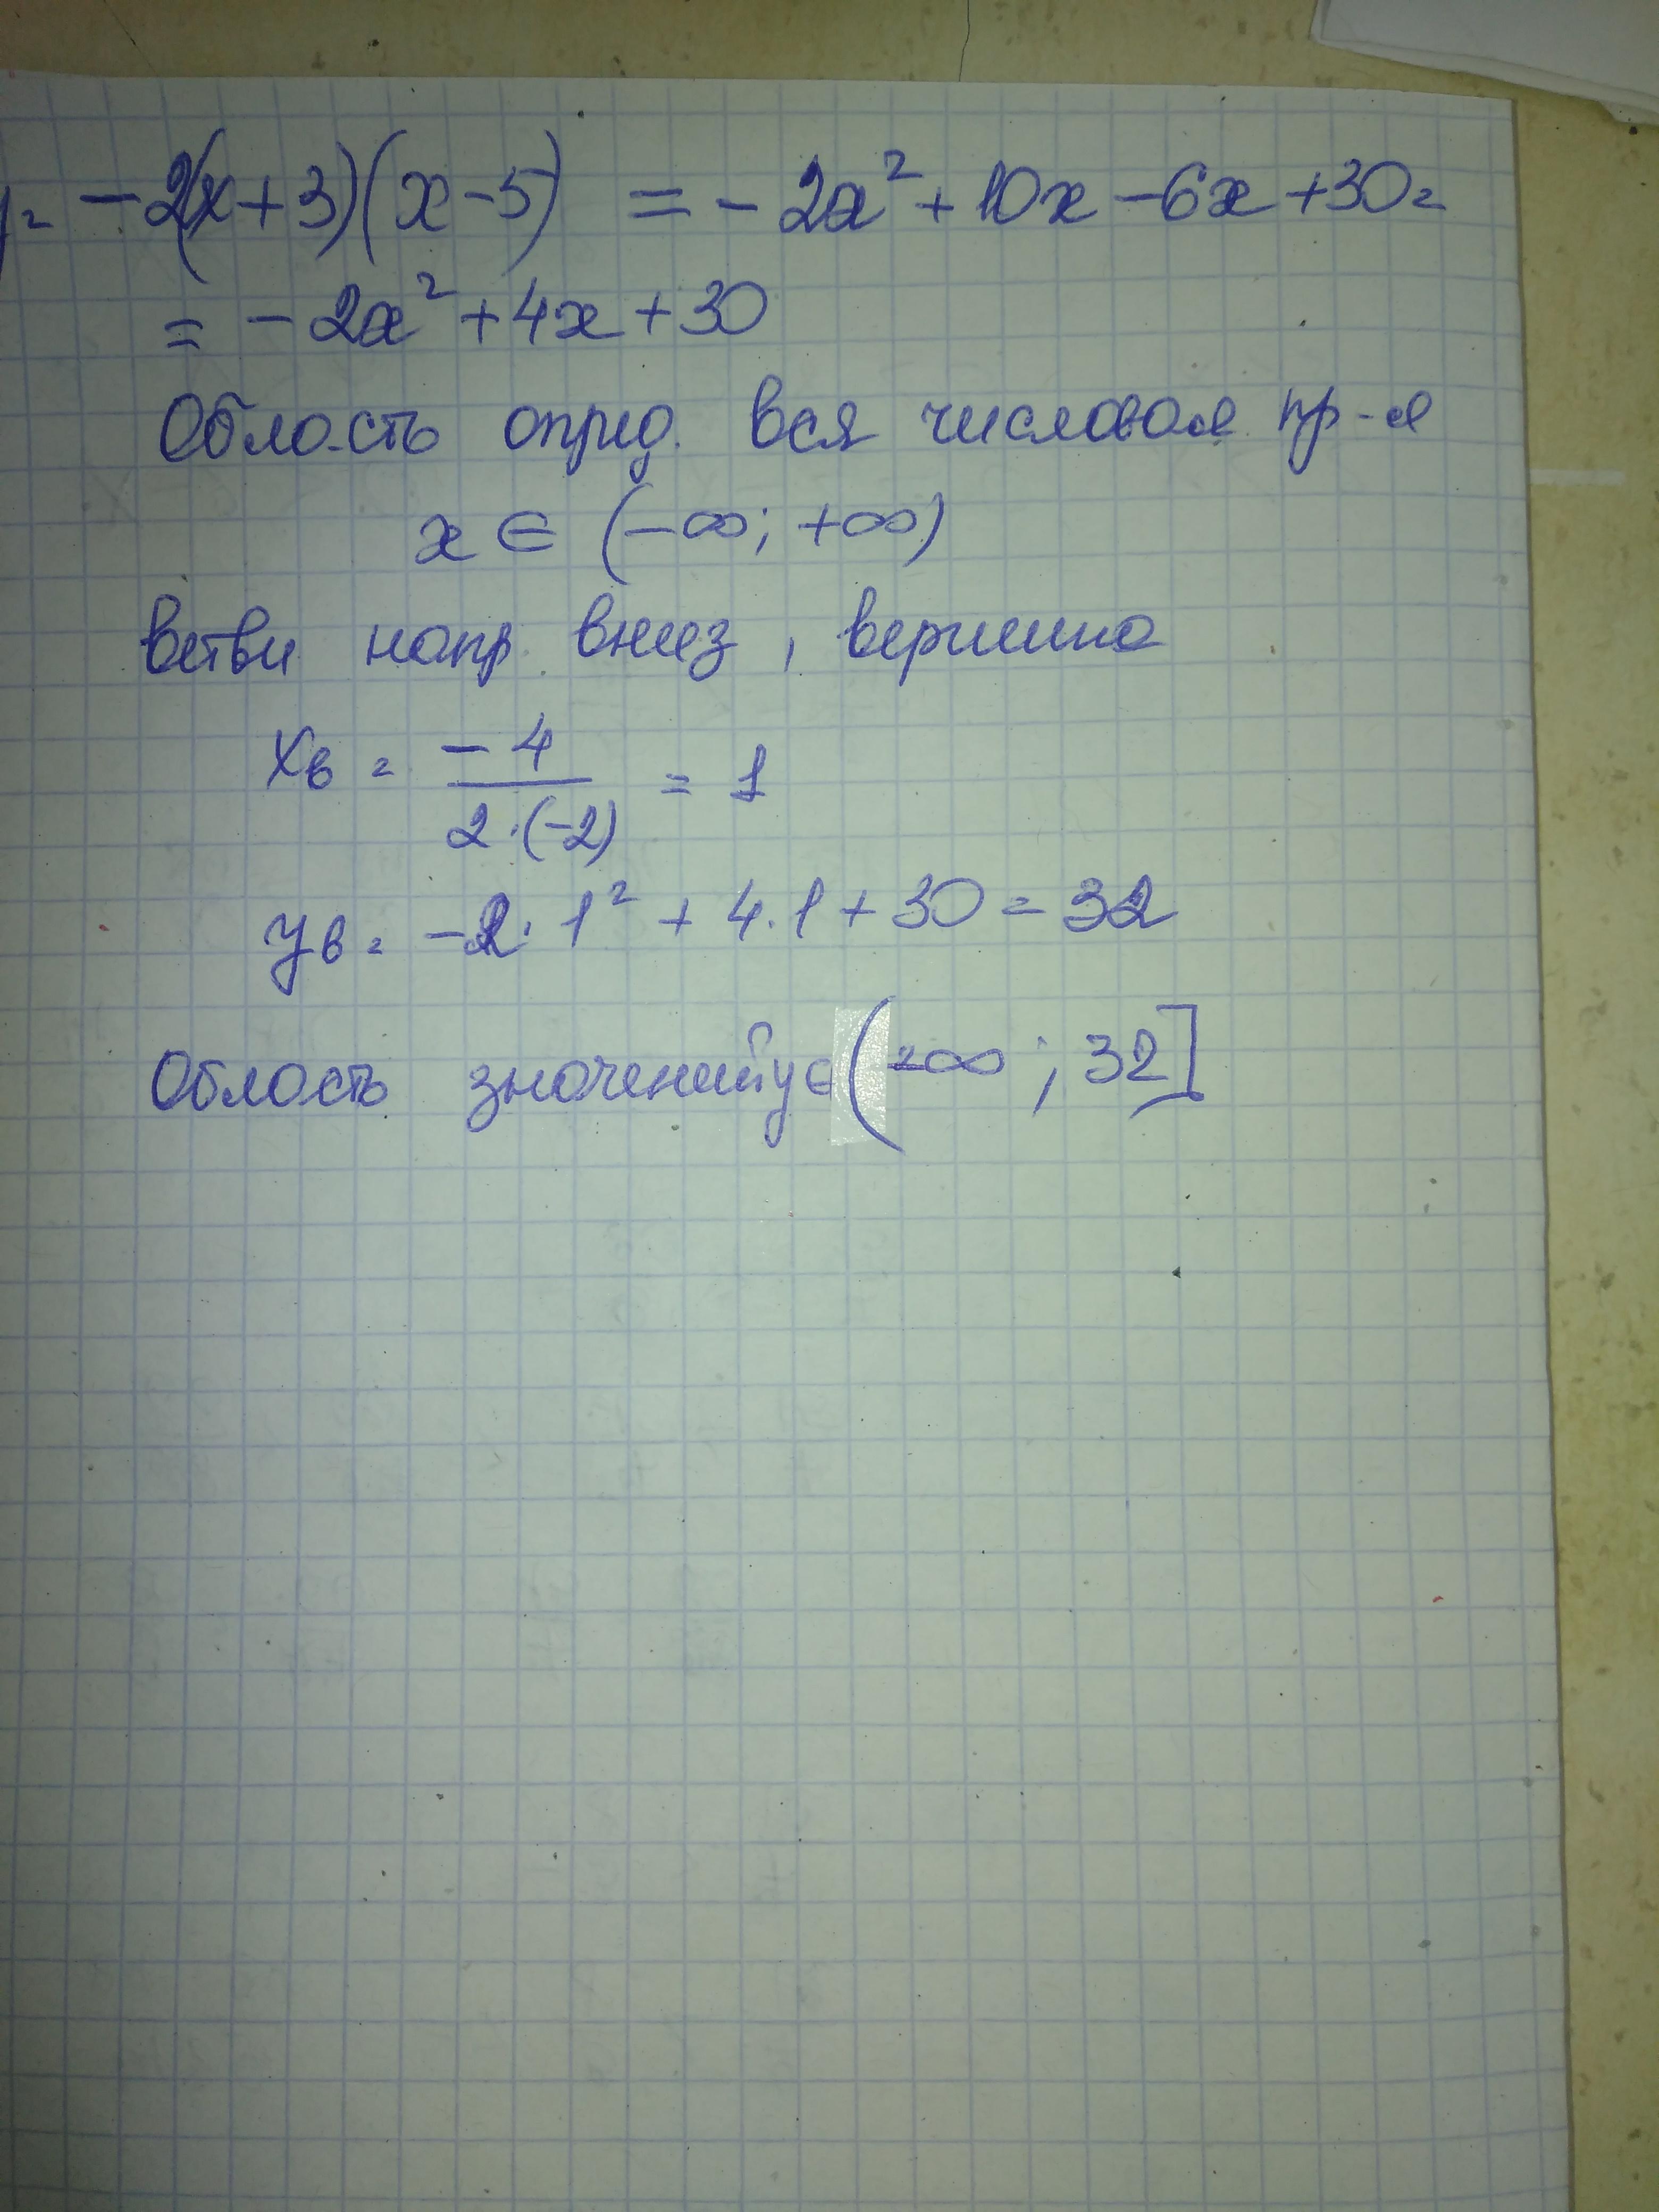 y = -2(x+3)(x-5) = -2x² + 10x - 6x + 30 =
= -2x² + 4x + 30
Область опред. вся числовая пр-я
x ∈ (-∞; +∞)
Ветви напр. вниз, вершина
xв = -4 / 2·(-2) = 1
yв = -2·1² + 4·1 + 30 = 32
Область значений y ∈ (-∞; 32]